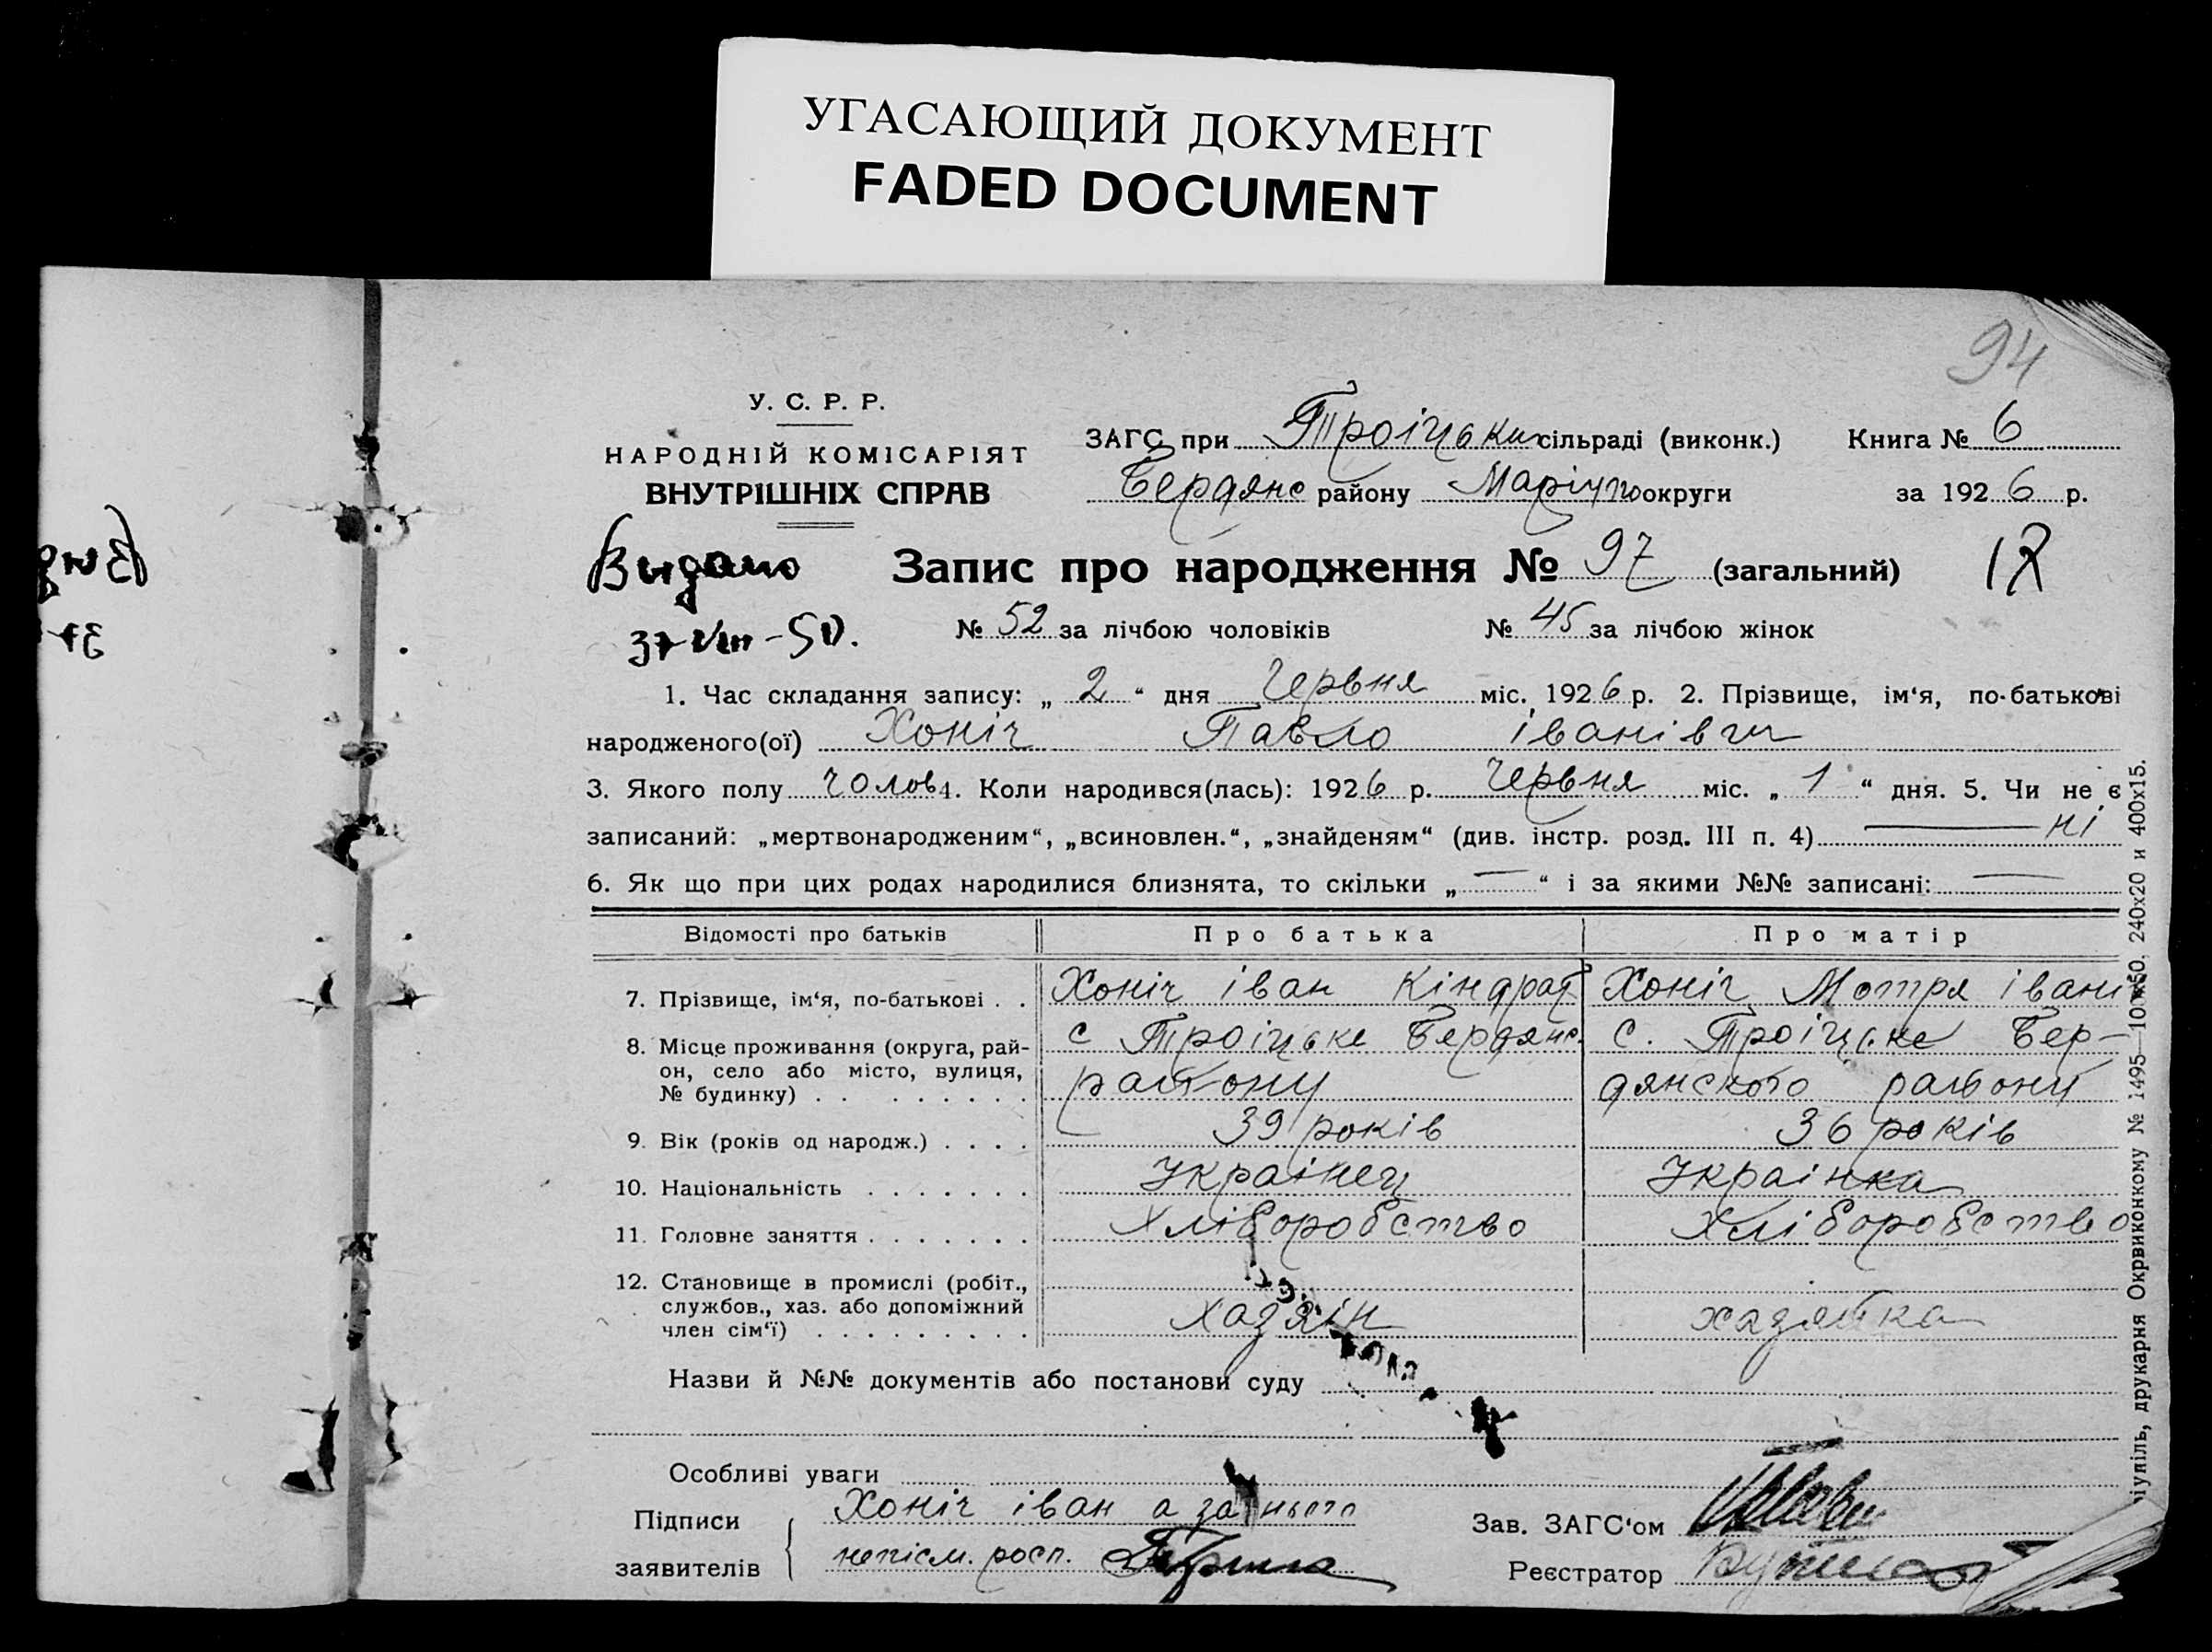 УГАСАЮЩИЙ ДОКУМЕНТ
FADED DOCUMENT
94
У. С. Р. Р.
НАРОДНІЙ КОМІСАРІЯТ
ВНУТРІШНІХ СПРАВ
ЗАГС при Троіцьки сільраді (виконк.) Книга № 6
Бердянс району Маріуп округи за 1926 р.
Видано
Запис про народження № 97 (загальний)
№ 52 за лічбою чоловіків № 45 за лічбою жінок
1. Час складання запису: „ 2 “ дня Червня міс. 1926 р. 2. Прізвище, ім‘я, по-батькові
народженого(ої) Хоніч Павло івановіч
3. Якого полу чолов 4. Коли народився(лась): 1926 р. Червня міс. „ 1 “ дня. 5. Чи не є
записаний: „мертвонародженим“, „всиновлен.“, „знайденям“ (див. інстр. розд. III п. 4) — ні
6. Як що при цих родах народилися близнята, то скільки „ — “ і за якими №№ записані: —
Відомості про батьків Про батька Про матір
7. Прізвище, ім‘я, по-батькові . . Хоніч іван Кіндрат Хоніч Мотря івані
8. Місце проживання (округа, рай-
он, село або місто, вулиця,
№ будинку) . . . . . . . . .
с Троіцьке Бердянс.
району
с. Троіцьке Бер-
дянского району
9. Вік (років од народж.) . . . . 39 років 36 років
10. Національність . . . . . . . Украінец Украінка
11. Головне заняття . . . . . . . Хліборобство Хліборобство
12. Становище в промислі (робіт.,
службов., хаз. або допоміжний
член сім‘ї) . . . . . . . . .
хазяін хазяйка
Назви й №№ документів або постанови суду
Особливі уваги
Підписи
заявителів
Хоніч іван а за нього
непісм. росп.
Зав. ЗАГС‘ом
Реєстратор
іупіль, друкарня Окрвиконкому № 1495—100×50. 240х20 и 400х15.